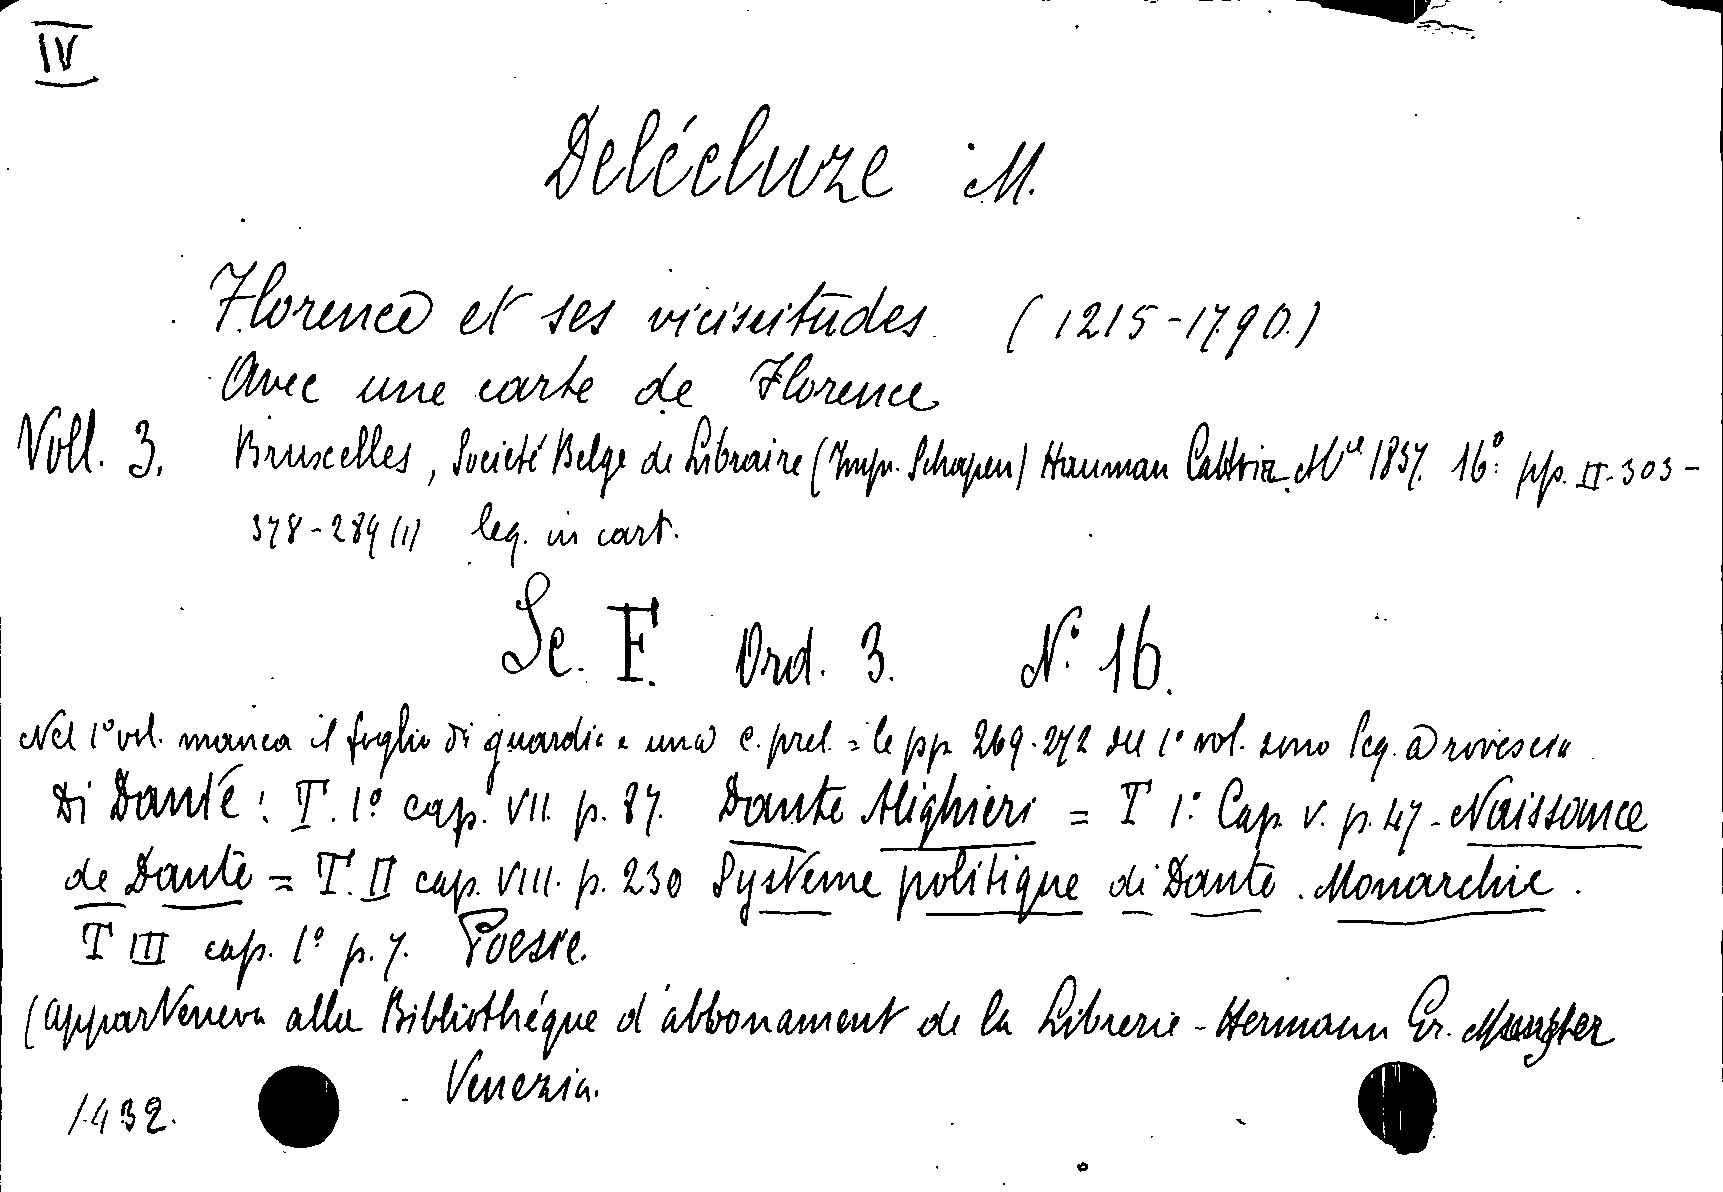 IV
Delécluze M.
Florence et ses vicissitudes (1215-1790.)
Avec une carte de Florence
Voll. 3. Bruxelles, Societé Belge de Libraire (Impr. Schapen) Hauman 1837. 16° pp. II-303-
378-289 (1) leg. in cart.
Se. F. Ord. 3. N.° 16.
Nel 1° vol. manca il foglio di guardia e una c. prel. = le pp. 269-272 del 1° vol. sono leg. a rovescio
Di Dante: T. 1° cap. VII. p. 87. Dante Alighieri = T 1° Cap. V. p. 47 - Naissance
de Dante = T. II cap. VIII. p. 230 Systeme politique di Dante. Monarchie.
T III cap. 1° p. 7. Poesie.
(apparteneva alla Bibliothéque d'abbonament de la Librerie - Hermann Gr. Munster
Venezia.
1432.